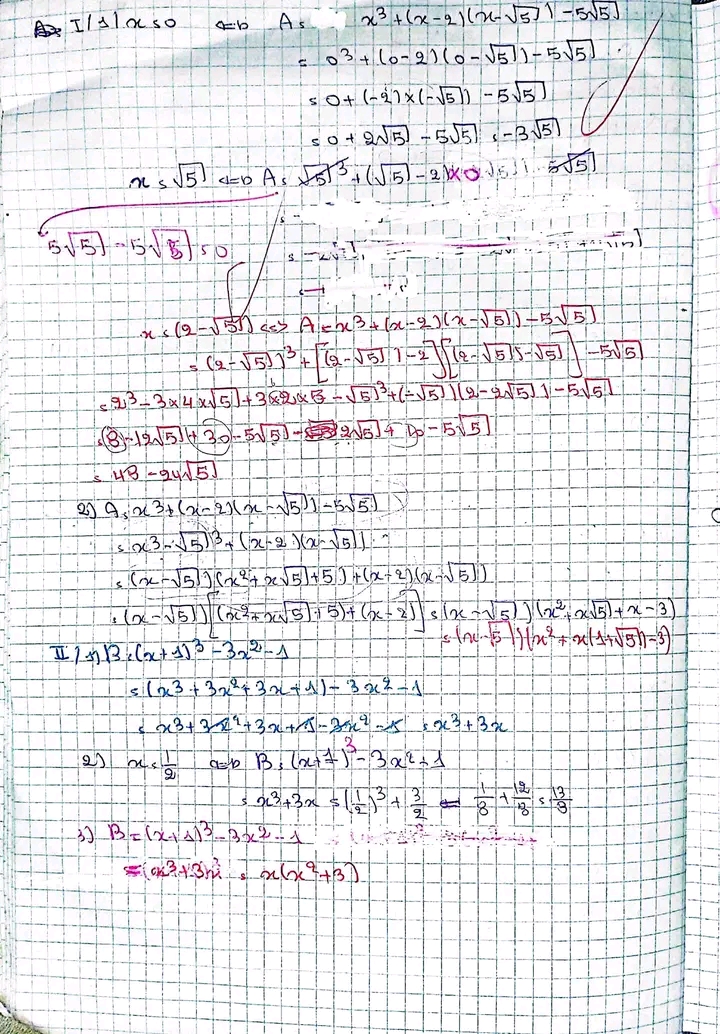 I/1/ x = 0 ⇔ A = x³ + (x-2)(x-√5) - 5√5
= 0³ + (0-2)(0-√5) - 5√5
= 0 + (-2)×(-√5) - 5√5
= 0 + 2√5 - 5√5 = -3√5
x = √5 ⇔ A = √5³ + (√5 - 2)×0 5√5
5√5 - 5√5 = 0
x = (2-√5) ⇔ A = x³ + (x-2)(x-√5) - 5√5
= (2-√5)³ + [(2-√5)-2][(2-√5)-√5] - 5√5
= 2³ - 3×4×√5 + 3×2×5 - √5³ + (-√5)(2-2√5) - 5√5
= 8 - 12√5 + 30 - 5√5 - 2√5 + 10 - 5√5
= 48 - 24√5
2) A = x³ + (x-2)(x-√5) - 5√5
= x³ - √5³ + (x-2)(x-√5)
= (x-√5)(x²+x√5+5) + (x-2)(x-√5)
= (x-√5)[(x²+x√5+5)+(x-2)] = (x-√5)(x²+x√5+x-3)
= (x-√5)(x²+x(1+√5)-3)
II/1) B = (x+1)³ - 3x² - 1
= (x³+3x²+3x+1) - 3x² - 1
= x³ + 3x² + 3x + 1 - 3x² - 1 = x³ + 3x
2) x = 1/2 ⇔ B = (x+1)³ - 3x² - 1
= x³ + 3x = (1/2)³ + 3/2 = 1/8 + 12/8 = 13/8
3) B = (x+1)³ - 3x² - 1
= x³ + 3x = x(x²+3)